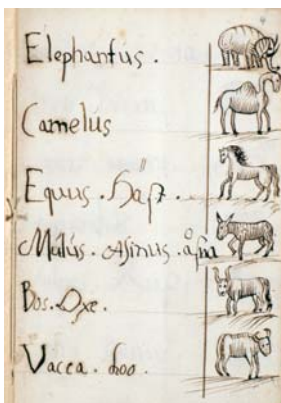 Elephantus.
Camelus
Equus. Häst.
Mulus. Asinus. åsna
Bos. Oxe.
Vacca. koo.